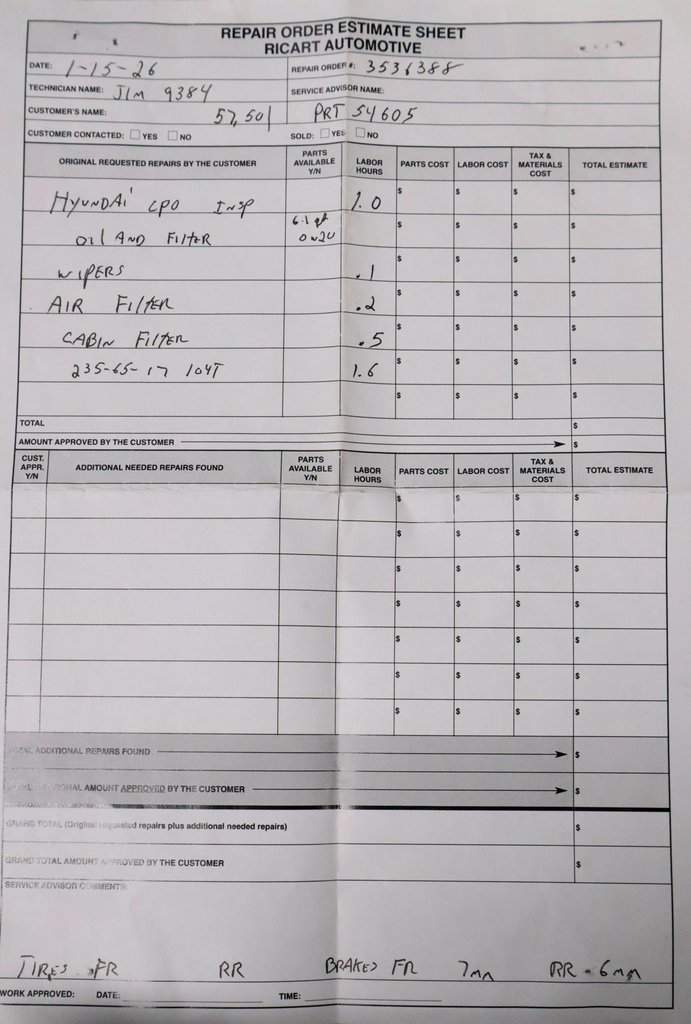 REPAIR ORDER ESTIMATE SHEET
RICART AUTOMOTIVE
DATE: 1-15-26 REPAIR ORDER #: 3536388
TECHNICIAN NAME: Jim 9384 SERVICE ADVISOR NAME:
CUSTOMER'S NAME: 57,501 PRT 54605
CUSTOMER CONTACTED: YES NO SOLD: YES NO
ORIGINAL REQUESTED REPAIRS BY THE CUSTOMER PARTS AVAILABLE Y/N LABOR HOURS PARTS COST LABOR COST TAX & MATERIALS COST TOTAL ESTIMATE
HYUNDAI CPO INSP 1.0 $ $ $ $
OIL AND FILTER 6.1 qt 0w20 $ $ $ $
WIPERS .1 $ $ $ $
AIR FILTER .2 $ $ $ $
CABIN FILTER .5 $ $ $ $
235-65-17 104T 1.6 $ $ $ $
$ $ $ $
TOTAL $
AMOUNT APPROVED BY THE CUSTOMER $
CUST. APPR. Y/N ADDITIONAL NEEDED REPAIRS FOUND PARTS AVAILABLE Y/N LABOR HOURS PARTS COST LABOR COST TAX & MATERIALS COST TOTAL ESTIMATE
$ $ $ $
$ $ $ $
$ $ $ $
$ $ $ $
$ $ $ $
$ $ $ $
$ $ $ $
TOTAL ADDITIONAL REPAIRS FOUND $
ADDITIONAL AMOUNT APPROVED BY THE CUSTOMER $
GRAND TOTAL (Original requested repairs plus additional needed repairs) $
GRAND TOTAL AMOUNT APPROVED BY THE CUSTOMER $
SERVICE ADVISOR COMMENTS:
TIRES FR RR BRAKES FR 7mm RR - 6mm
WORK APPROVED: DATE: TIME: